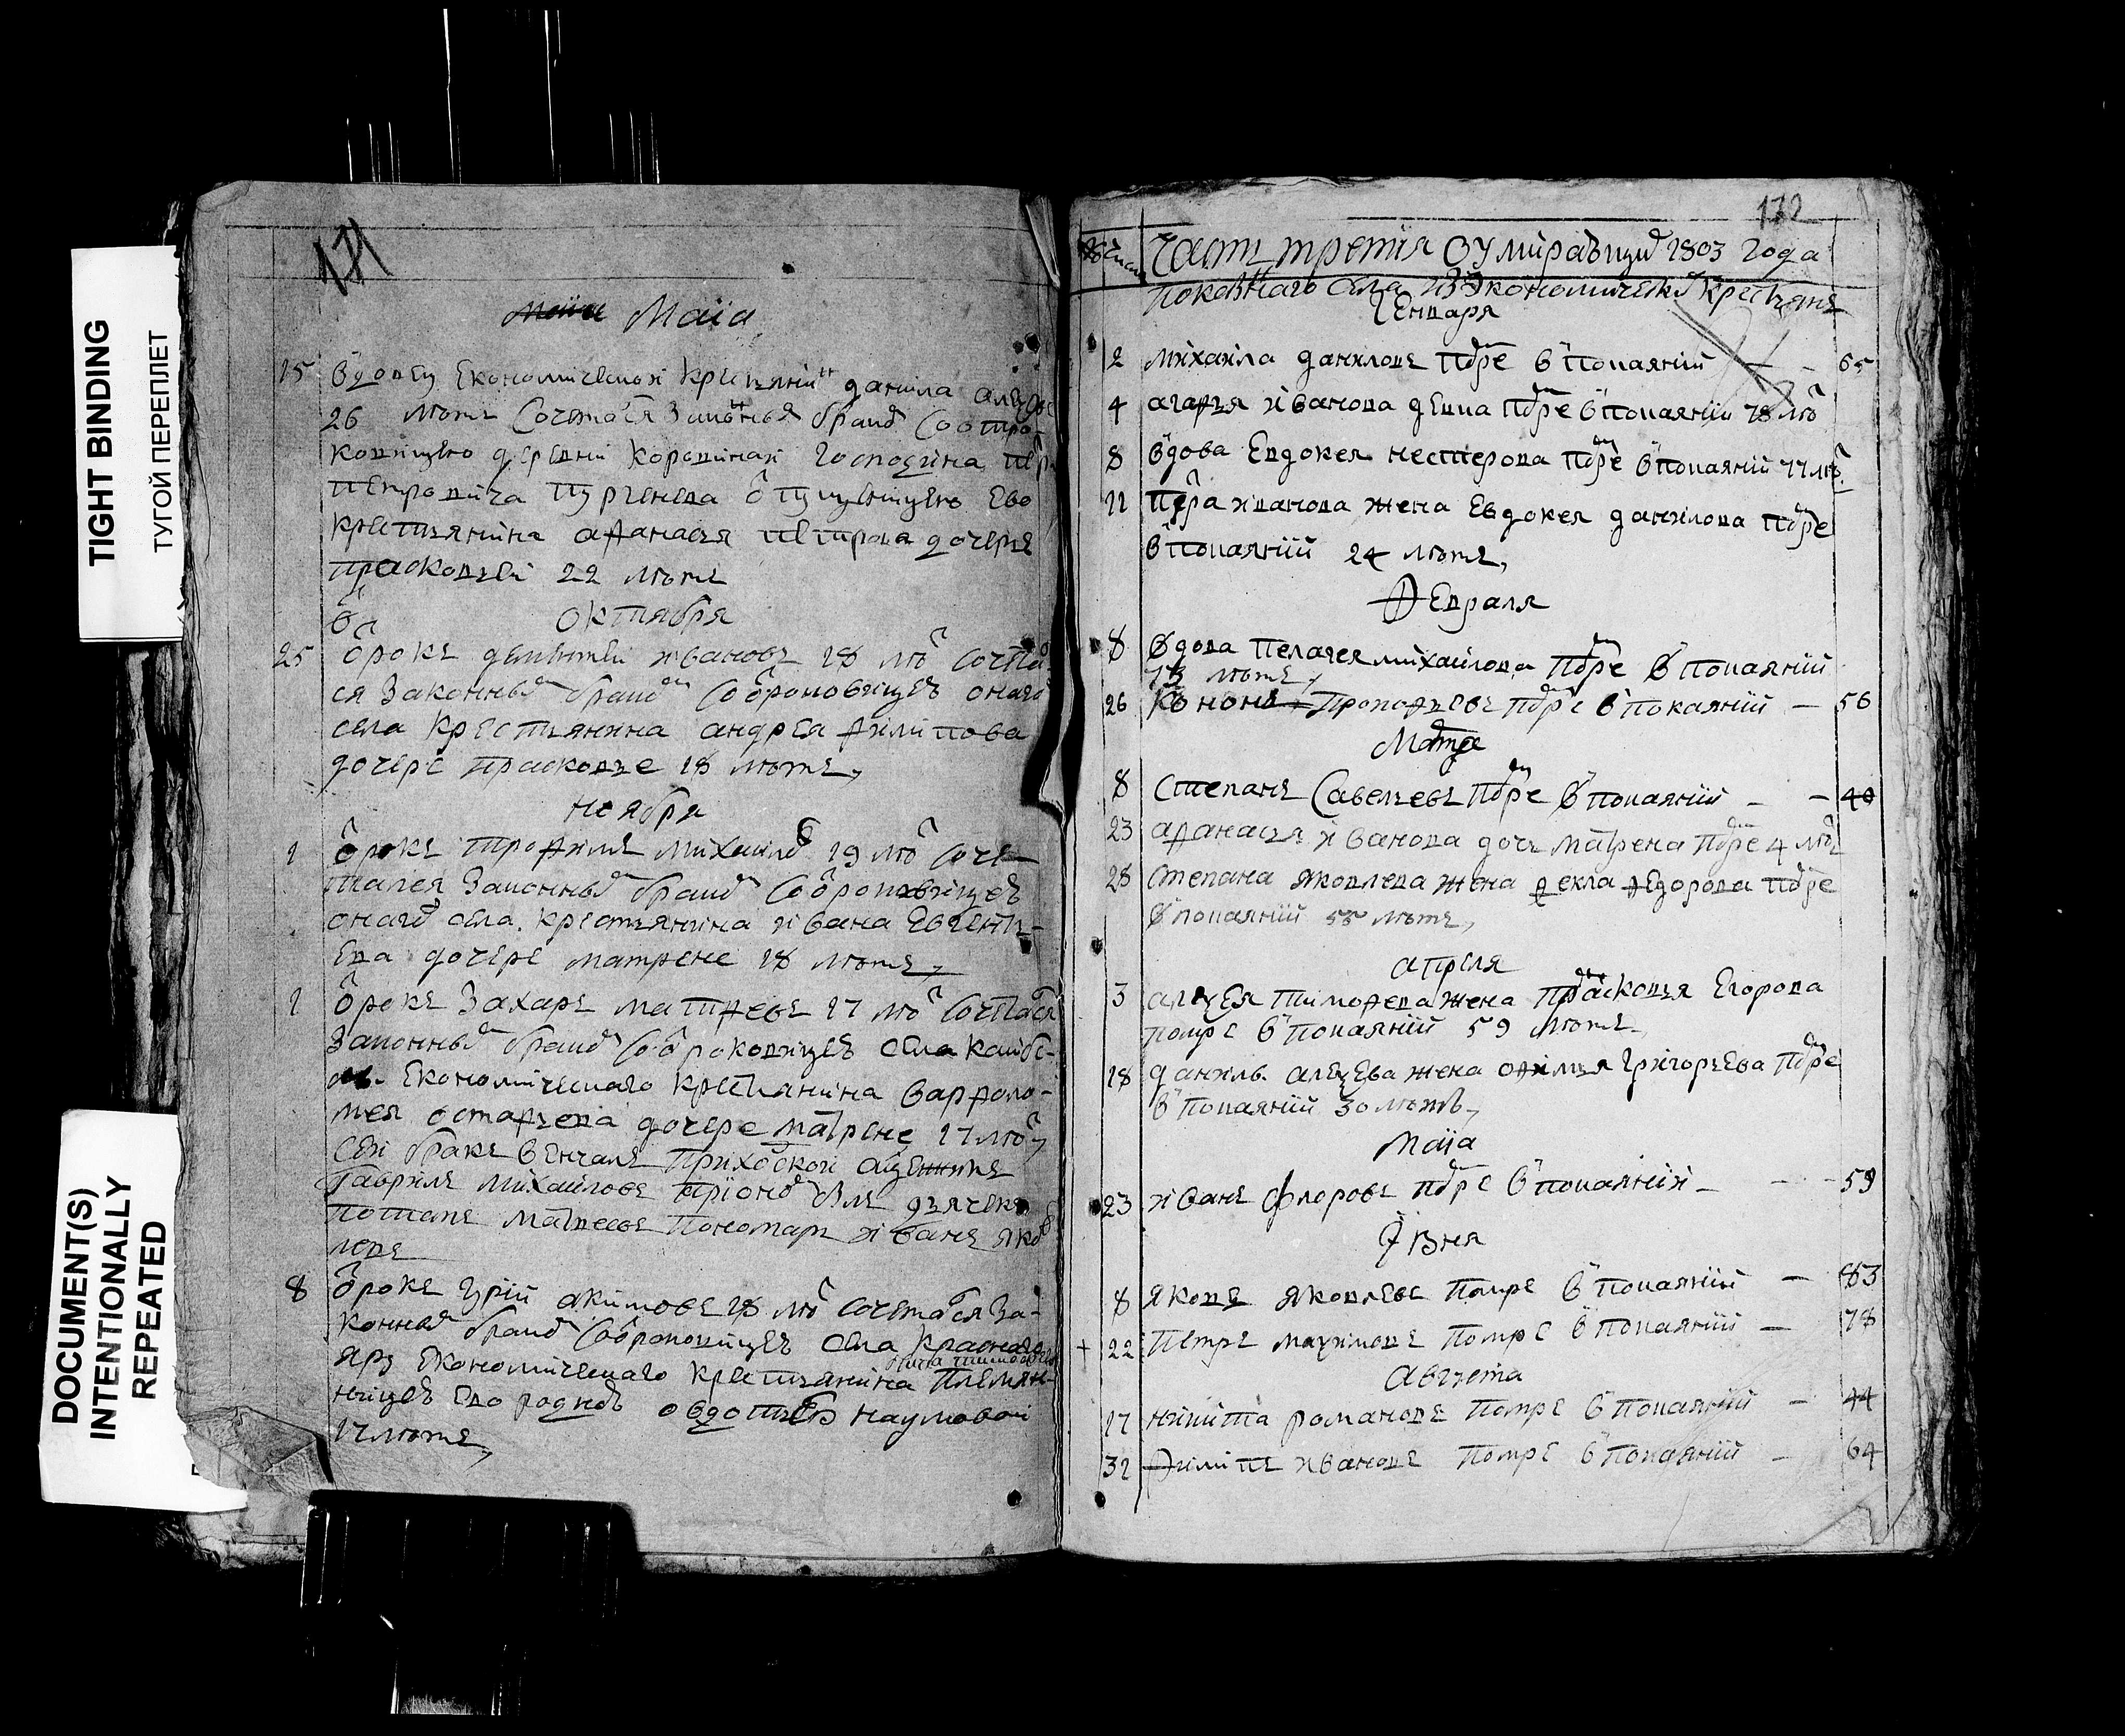 TIGHT BINDING
ТУГОЙ ПЕРЕПЛЕТ
DOCUMENT(S)
INTENTIONALLY
REPEATED
171
Маиа
15 вдовец економическои крестьянинъ данила
26 лѣтъ сочетался законнымъ бракомъ со отро-
ковицею деревни господина
петровича тургенева отпущенницею ево
крестьянина афанасья петрова дочерью
прасковьей 22 лѣтъ
октября
25 отрокъ дементей ивановъ 18 лѣтъ сочета
ся законнымъ бракомъ со отроковицею онаго
села крестьянина андрея филипова
дочере прасковье 18 лѣтъ,
ноября
1 отрокъ трофимъ михаиловъ 19 лѣтъ соче-
тался законнымъ бракомъ со отроковицею
онаго села крестьянина ивана евгенть-
ева дочере матрене 18 лѣтъ,
1 отрокъ захаръ матфеевъ 17 лѣтъ сочетался
законнымъ бракомъ со отроковицею села
економическаго крестьянина варфоло-
мея остафьева дочере матрене 17 лѣтъ,
сеи бракъ венчалъ приходской священникъ
гаврилъ михаиловъ при ономъ былъ дьячекъ
потапъ матвеевъ пономарь иванъ яков
левъ
8 отрокъ гурий акимовъ 18 лѣтъ сочетался за-
коннымъ бракомъ со отроковицею села краснаго
яру економическаго крестьянина племян-
ницею ево родною овдотьею наумовой
17 лѣтъ,
172
число часть третія о умирающихъ 1803 года
показаннаго села изъ экономическихъ крестьянъ
генваря
2 михаила даниловъ померъ в покаянии — 65
4 агафья иванова девка померъ в покаянии 78 лѣтъ
8 вдова евдокея нестерова померъ в покаянии 77 лѣтъ
11 петра иванова жена евдокея данилова померъ
в покаянии 24 лѣтъ,
февраля
8 вдова пелагея михаилова померъ в покаянии
73 лѣтъ,
26 кононъ прокофьевъ померъ в покаянии — 56
марта
8 степанъ савельевъ померъ в покаянии — — 40
23 афанасья иванова дочь матрена померъ 4 лѣтъ
28 степана яковлева жена фекла федорова померъ
в покаянии 55 лѣтъ,
апреля
3 алексея тимофева жена прасковья егорова
помре в покаянии 59 лѣтъ
18 данилы алексеева жена офимья григорьева померъ
в покаянии 30 лѣтъ,
маиа
23 иванъ флоровъ померъ в покаянии — — 59
июня
8 яковъ яковлевъ помре в покаянии — 83
22 петръ махимовъ помре в покаянии — 78
августа
17 никита романовъ помре в покаянии — 44
31 филипъ ивановъ помре в покаянии — 64